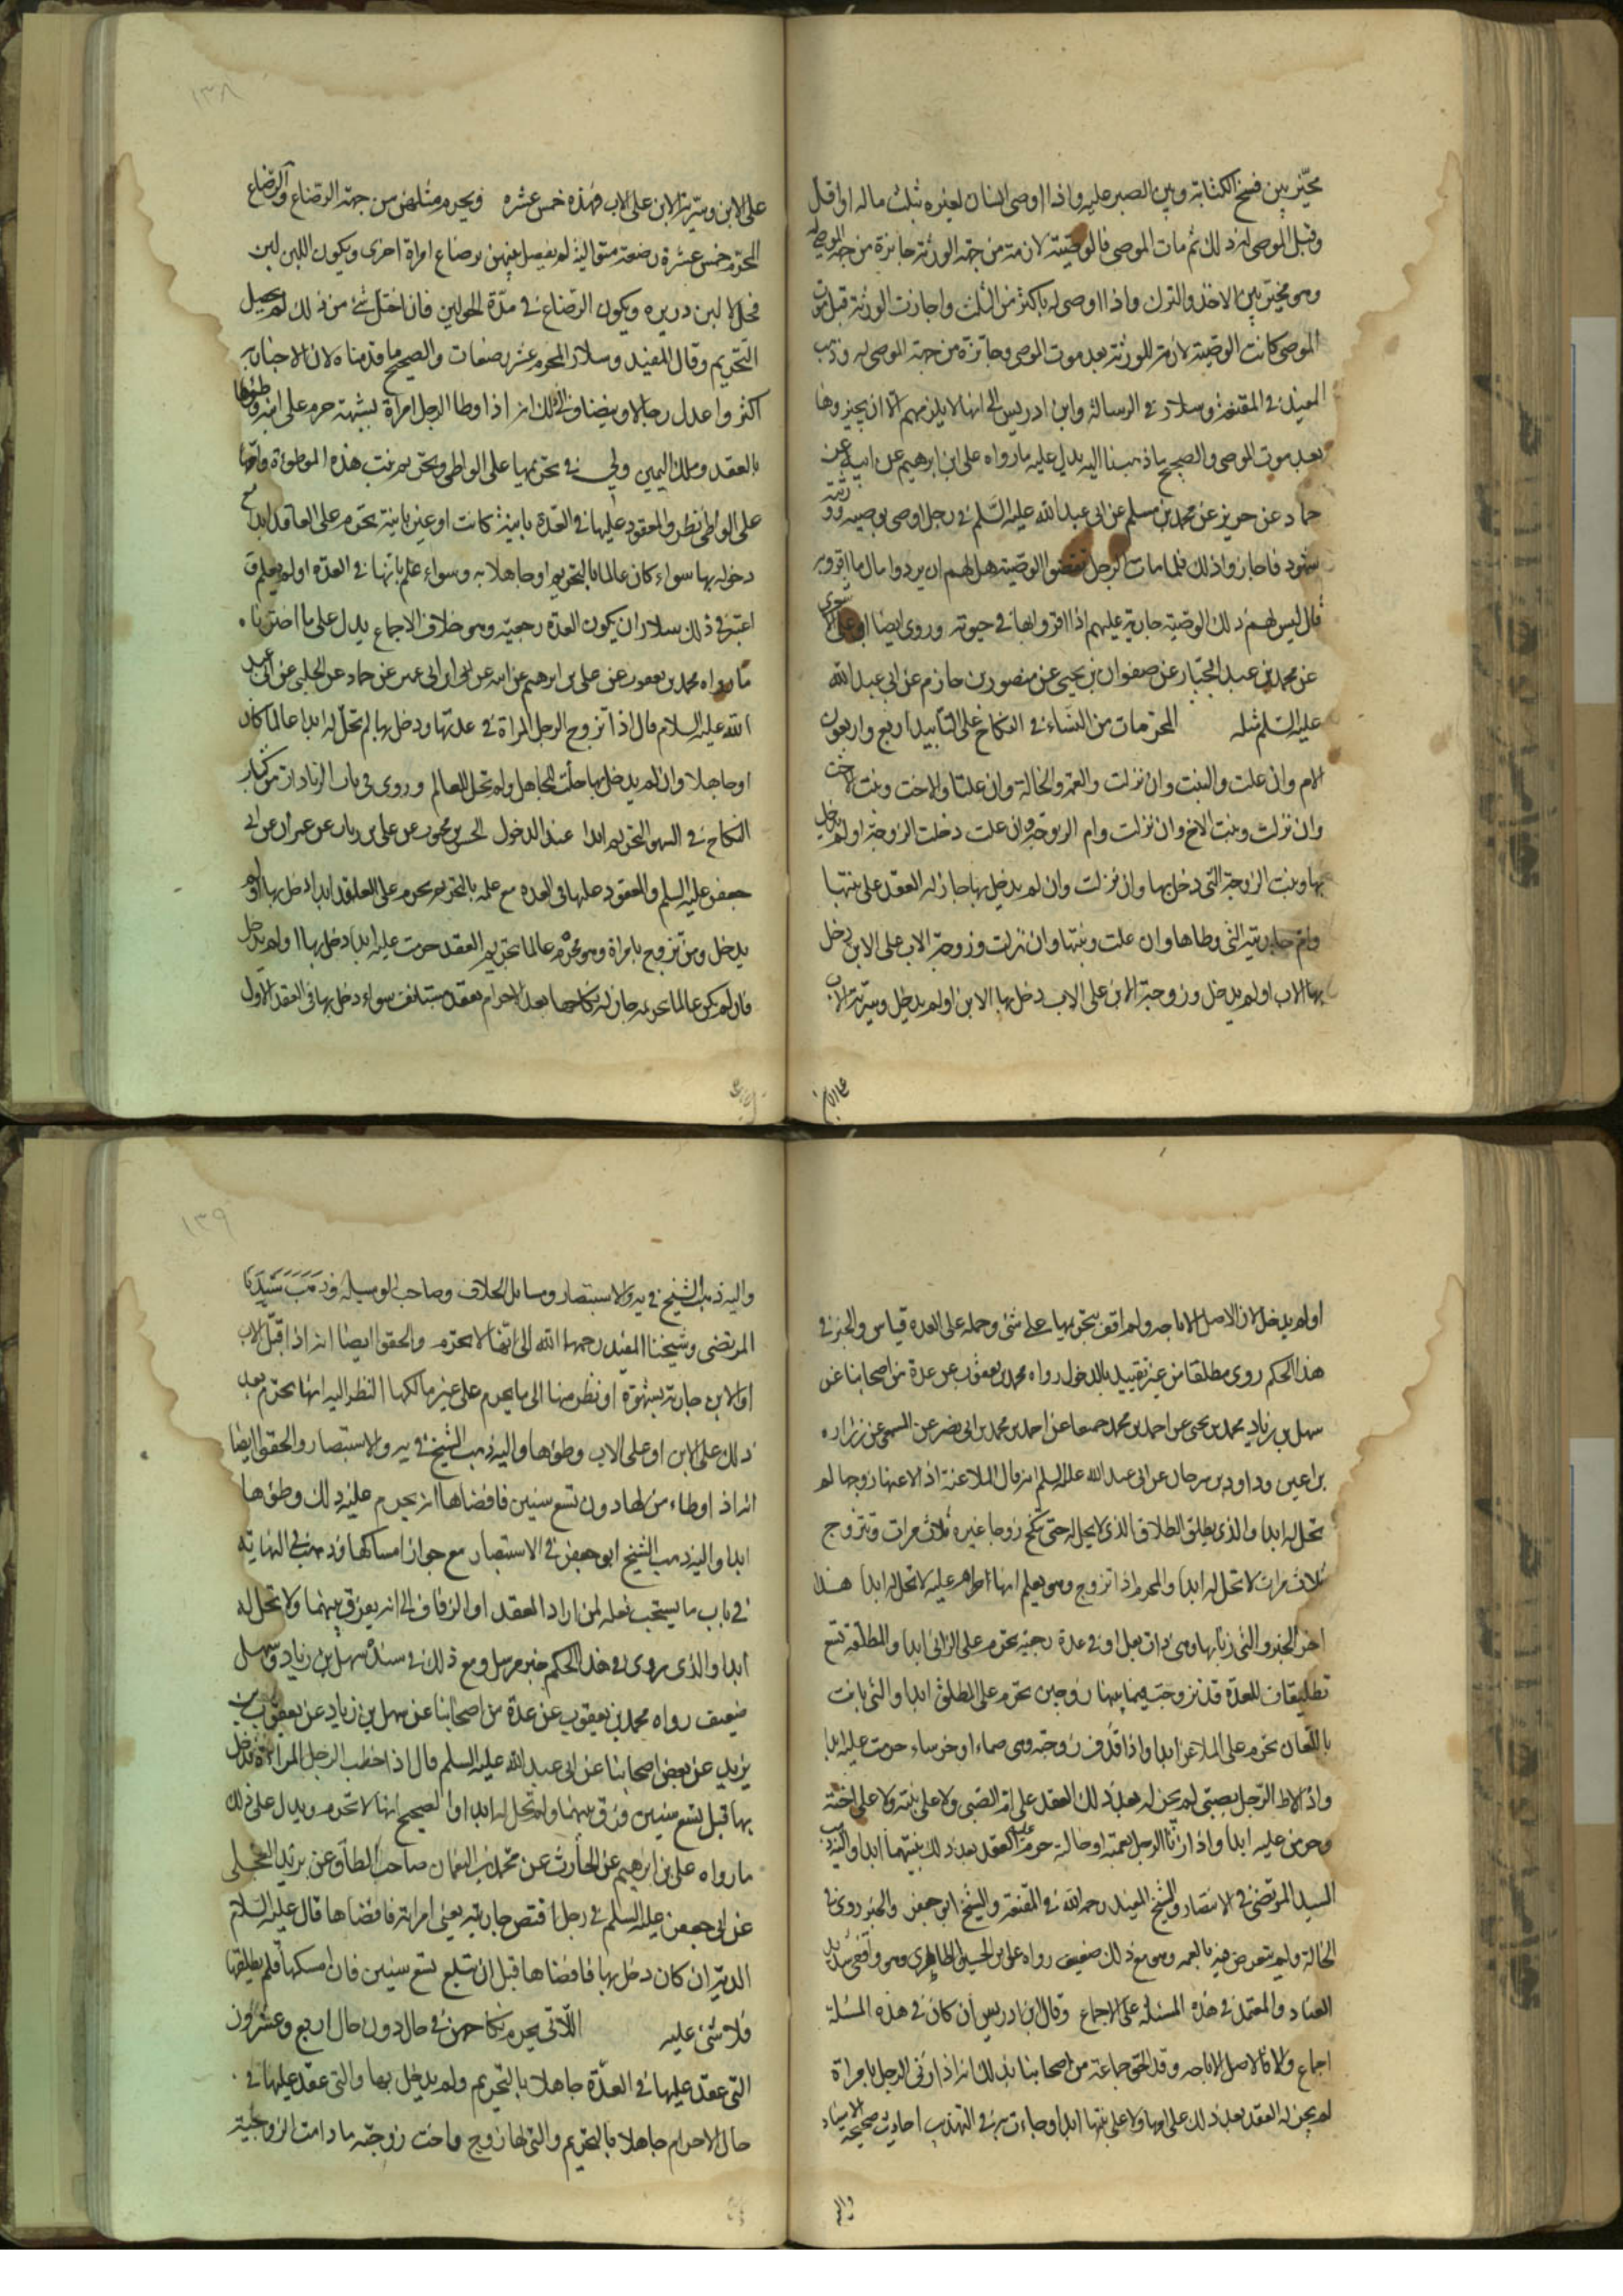 مخيّر بين فسخ الكتابة وبين الصبر عليه واذا اوصى انسان لغيره بثلث ماله او اقل
وقبل الموصى له ذلك ثم مات الموصى فالوصيّة لازمة من جهة الورثة جائزة من جهة الموصى له
وهو مخيّر بين الاخذ والترك واذا اوصى له باكثر من الثلث واجازت الورثة قبل موت
الموصى كانت الوصيّة لازمة للورثة بعد موت الموصى وجائزة من جهة الموصى له وذهب
المفيد في المقنعة وسلار في الرسالة وابن ادريس الى انها لا يلزمهم الا ان يجيزوها
بعد موت الموصى والصحيح ما ذهبنا اليه يدل عليه ما رواه على ابن ابرهيم عن ابيه عن
حماد عن حريز عن محمد بن مسلم عن ابى عبد الله عليه السّلم في رجل اوصى بوصيه وورثته
شهود فاجازوا ذلك فلما مات الرجل نقضوا الوصيّة هل لهم ان يردوا ما اقروا به
قال ليس لهم ذلك الوصيّة جارية عليهم اذا اقروا بها في حيوته وروى ايضا ابو على الاشعرى
عن محمد بن عبد الجبّار عن صفوان بن يحيى عن منصور بن حازم عن ابى عبد الله
عليه السّلم مثله المحرّمات من النساء في النكاح على التأبيد اربع واربعون
الام وان علت والبنت وان نزلت والعمة والخالة وان علتا والاخت وبنت الاخت
وان نزلت وبنت الاخ وان نزلت وام الزوجة وان علت دخلت الزوجة او لم يدخل
بها وبنت الزوجة التى دخل بها وان نزلت وان لم يدخل بها جاز له العقد على بنتها
وام جاريته التى وطاها وان علت وبنتها وان نزلت وزوجة الاب على الابن دخل
بها الاب او لم يدخل وزوجة الابن على الاب دخل بها الابن او لم يدخل وسريّة الاب
على الابن
١٣٨
على الابن وسريّة الابن على الاب فهذه خمس عشره ويحرم مثلهن من جهة الرضاع والرضاع
المحرّم خمس عشرة رضعة متوالية لم يفصل بينهن برضاع امراة اخرى ويكون اللبن لبن
فحل لا لبن دريره ويكون الرضاع في مدّة الحولين فان اختل شئ من ذلك لم يحصل
التحريم وقال المفيد وسلار المحرم عشر رضعات والصحيح ما قدمناه لان الاخبار به
اكثر واعدل رجالا ويضاف الى ذلك انه اذا وطا الرجل امراة بشبهة حرم على ابنه وطؤها
بالعقد وملك اليمين ولى في تحريمها على الواطى وتحريم بنت هذه الموطوة وامها
على الواطى نظر والمعقود عليها في العدّة باينة كانت او غير باينة تحرم على العاقد ابدا مع
دخوله بها سواء كان عالما بالتحريم او جاهلا به وسواء علم بانها في العدّة او لم يعلم وقد
اعتبر في ذلك سلار ان يكون العدّة رجعيّة وهو خلاف الاجماع يدل على ما اخترناه
ما رواه محمد بن يعقوب عن على بن ابرهيم عن ابيه عن ابن ابى عمير عن حماد عن الحلبى عن ابى عبد
الله عليه السلام قال اذا تزوج الرجل المراة في عدتها ودخل بها لم تحل له ابدا عالما كان
او جاهلا وان لم يدخل بها حلّت للجاهل ولم تحل للعالم وروى في باب الزيادات من كتاب
النكاح في التحريم ابدا عند الدخول الحسن بن محبوب عن على بن رياب عن حمران عن ابى
جعفر عليه السلم والمعقود عليها في العدة مع علمه بالتحريم يحرم على العاقد ابدا دخل بها او لم
يدخل ومن تزوج بامراة وهو محرم عالما بتحريم العقد حرمت عليه ابدا دخل بها او لم يدخل
فان لم يكن عالما بتحريمه جاز له نكاحها بعد الاحرام بعقد مستانف سواء دخل بها في العقد الاول
او لم يدخل لان الاصل الاباحه ولم اقف بتحريمها على شئ وحمله على العدة قياس والخبر في
هذا الحكم روى مطلقا من غير تقييد بالدخول رواه محمد بن يعقوب عن عدة من اصحابنا عن
سهل بن زياد محمد بن يحيى عن احمد بن محمد جميعا عن احمد بن محمد بن ابى نصر عن المثنى عن زراره
بن اعين وداود بن سرحان عن ابى عبد الله عليه السلم انه قال الملاعنة اذا لاعنها زوجها لم
تحل له ابدا والذى يطلق الطلاق الذى لا يحل له حتى تنكح زوجا غيره ثلاث مرات وتزوج
ثلاث مرات لا تحل له ابدا والمحرم اذا تزوج وهو يعلم انها حرام عليه لا تحل له ابدا هذا
اخر الخبر والتى زنا بها وهى ذات بعل او في عدة رجعيّه تحرم على الزانى ابدا والمطلقة تسع
تطليقات للعدّة قد تزوجت فيما بينها زوجين تحرم على المطلق ابدا والتى بانت
باللعان تحرم على الملاعن ابدا واذا قذف زوجته وهى صماء او خرساء حرمت عليه ابدا
واذا لاط الرّجل بصبىّ لم يجز له بعد ذلك العقد على ام الصبى ولا على بنته ولا على اخته
وحرمن عليه ابدا واذا زنا الرجل بعمته او خالته حرم عليه العقد بعد ذلك بنتيهما ابدا واليه ذهب
السيد المرتضى في الانتصار والشيخ المفيد رحمه الله في المقنعة والشيخ ابو جعفر والخبر روى في
الخالة وليم يتعرض فيه بالعمه وهو مع ذلك ضعيف رواه على بن الحسين الطاهرى وهو واقفى شديد
العناد والمعتمد في هذه المسئلة على الاجماع وقال ابن ادريس ان كان في هذه المسئلة
اجماع والا فالاصل الاباحه وقد الحق جماعة من اصحابنا بذلك انه اذا زنى الرجل بامراة
لم يجز له العقد بعد ذلك على امها ولا على بنتها ابدا وجاءت به في التهذيب احاديث صحيحة الاسناد
واليه
١٣٩
واليه ذهب الشيخ في يه والاستبصار ومسايل الخلاف وصاحب الوسيلة وذهب سيّدنا
المرتضى وشيخنا المفيد رحمهما الله الى انها لا تحرم والحقوا ايضا انه اذا قبّل الاب
او الابن جارية بشهوة او نظر منها الى ما يحرم على غير مالكها النظر اليه انها تحرم بعد
ذلك على الابن او على الاب وطؤها واليه ذهب الشيخ في يه والاستبصار والحقوا ايضا
انه اذا وطاء من لها دون تسع سنين فافضاها انه يحرم عليه ذلك وطؤها
ابدا واليه ذهب الشيخ ابو جعفر في الاستبصار مع جواز امساكها وذهب في النهاية
في باب ما يستحب فعله لمن اراد العقد او الزفاف الى انه يفرق بينهما ولا تحل له
ابدا والذى روى في هذا الحكم خبر مرسل ومع ذلك في سنده سهل بن زياد وسهل
ضعيف رواه محمد بن يعقوب عن عدة من اصحابنا عن سهل بن زياد عن يعقوب بن
يزيد عن بعض اصحابنا عن ابى عبد الله عليه السلم قال اذا خطب الرجل المراة فدخل
بها قبل تسع سنين فرق بينهما ولم تحل له ابدا والصحيح انها لا تحرم ويدل على ذلك
ما رواه على بن ابرهيم عن الحارث عن محمد بن النعمان صاحب الطاق عن بريد العجلى
عن ابى جعفر عليه السلم في رجل اقتض جارية يعنى امراته فافضاها قال عليه السّلام
الديّة ان كان دخل بها فافضاها قبل ان تبلغ تسع سنين فان امسكها ولم يطلقها
فلا شئ عليه اللاتى يحرم نكاحهن في حال دون حال اربع وعشرون
التى عقد عليها في العدّة جاهلا بالتحريم ولم يدخل بها والتى عقد عليها في
حال الاحرام جاهلا بالتحريم والتى لها زوج واخت زوجته ما دامت الزوجية